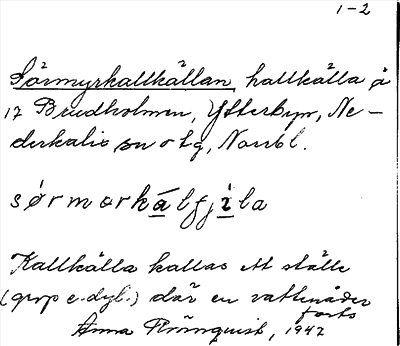 1-2
Sörmyrkallkällan, kallkälla å
17 Brudholmen, Ytterbyn, Ne-
derkalix sn o tg, Norrbl.
sørmørkálfjìla
Kallkälla kallas ett ställe
(grop e.dyl.) där en vattenåder
forts
Anna Rönnquist, 1942